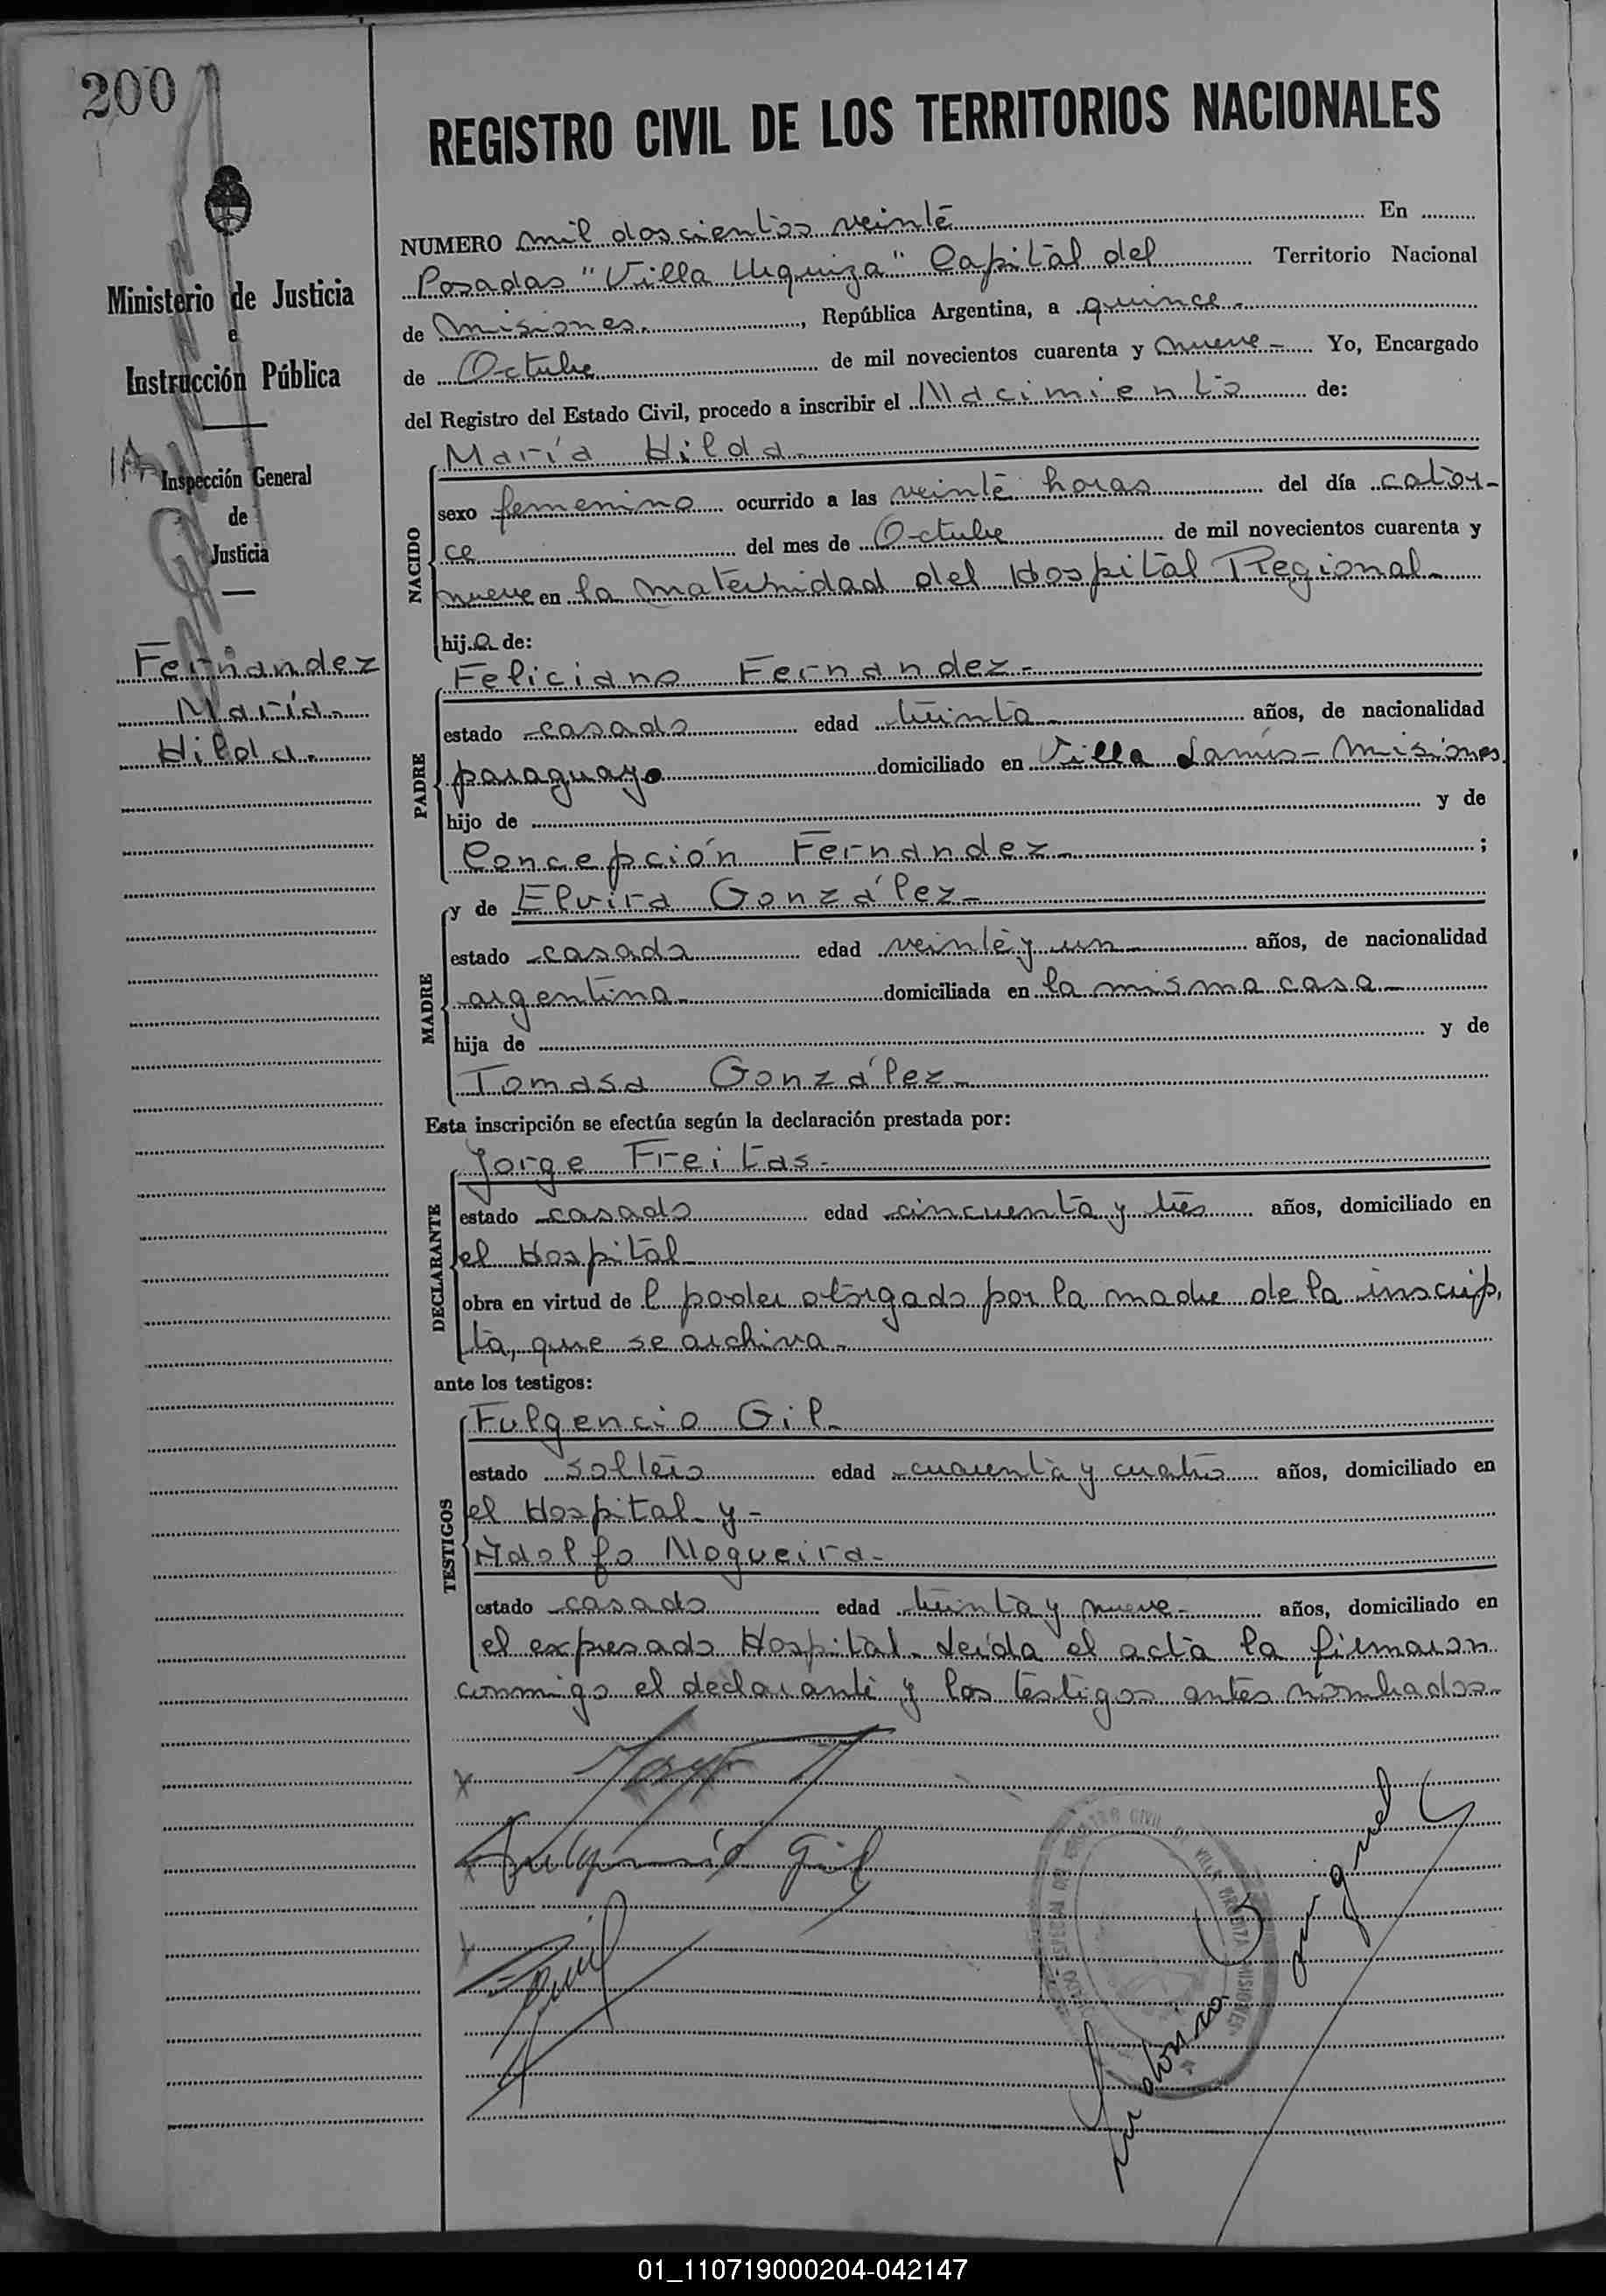 200
Ministerio de Justicia
e
Instrucción Pública
Inspección General
de
Justicia
Fernandez
María
Hilda.
REGISTRO CIVIL DE LOS TERRITORIOS NACIONALES
NUMERO mil doscientos veinte En
Posadas "Villa Urquiza" Capital del Territorio Nacional
de Misiones. , República Argentina, a quince -
de Octubre de mil novecientos cuarenta y nueve - Yo, Encargado
del Registro del Estado Civil, procedo a inscribir el Nacimiento de:
María Hilda
NACIDO
sexo femenino ocurrido a las veinte horas del día cator-
ce del mes de Octubre de mil novecientos cuarenta y
nueve en la maternidad del Hospital Regional -
hij.a de:
Feliciano Fernandez -
PADRE
estado casado edad treinta - años, de nacionalidad
paraguayo domiciliado en Villa Lanús - Misiones
hijo de y de
Concepción Fernandez - ;
y de Elvira González -
MADRE
estado casada edad veinte y un - años, de nacionalidad
argentina - domiciliada en la misma casa -
hija de y de
Tomasa González -
Esta inscripción se efectúa según la declaración prestada por:
Jorge Freitas -
DECLARANTE
estado casado edad cincuenta y tres años, domiciliado en
el Hospital
obra en virtud de l poder otorgado por la madre de la inscrip,
ta, que se archiva -
ante los testigos:
Fulgencio Gil -
TESTIGOS
estado soltero edad cuarenta y cuatro años, domiciliado en
el Hospital y -
Adolfo Nogueira -
estado casado edad treinta y nueve - años, domiciliado en
el expresado Hospital - Leída el acta la firmaron
conmigo el declarante y los testigos antes nombrados -
Fulgencio Gil
01_110719000204-042147